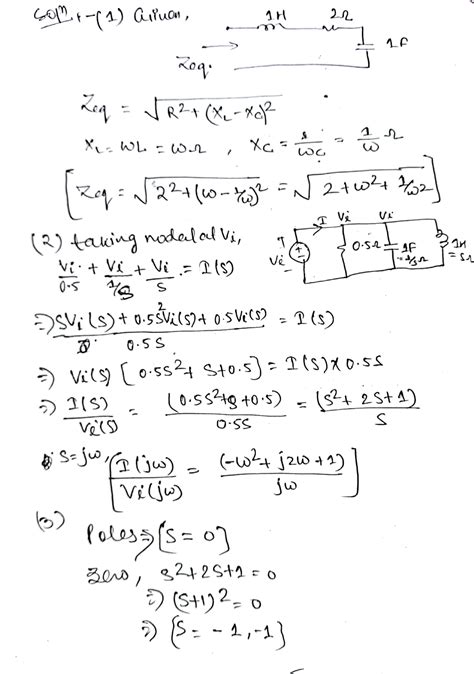 Solⁿ :- (1) Given,
1H 2Ω
1F
Zeq.
Zeq = √R² + (XL - XC)²
XL = ωL = ωΩ , XC = 1/ωC = 1/ω Ω
[Zeq = √2² + (ω - 1/ω)² = √2 + ω² + 1/ω²]
(2) taking nodal at Vi,
I Vi Vi
Vi 0.5Ω 1F = 1/s Ω 1H = sΩ
Vi/0.5 + Vi/(1/s) + Vi/s = I(s)
⇒ (sVi(s) + 0.5s²Vi(s) + 0.5Vi(s))/0.5s = I(s)
⇒ Vi(s) [0.5s² + s + 0.5] = I(s) × 0.5s
⇒ I(s)/Vi(s) = (0.5s² + s + 0.5)/0.5s = (s² + 2s + 1)/s
s = jω, [I(jω)/Vi(jω) = (-ω² + j2ω + 1)/jω]
(3)
Poles ⇒ [s = 0]
zero, s² + 2s + 1 = 0
⇒ (s+1)² = 0
⇒ {s = -1, -1}